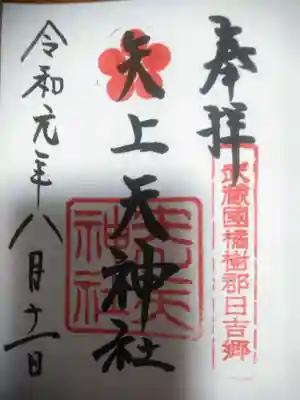 奉拝
武蔵國橘樹郡日吉郷
矢上天神社
矢上天神社
令和元年八月十一日